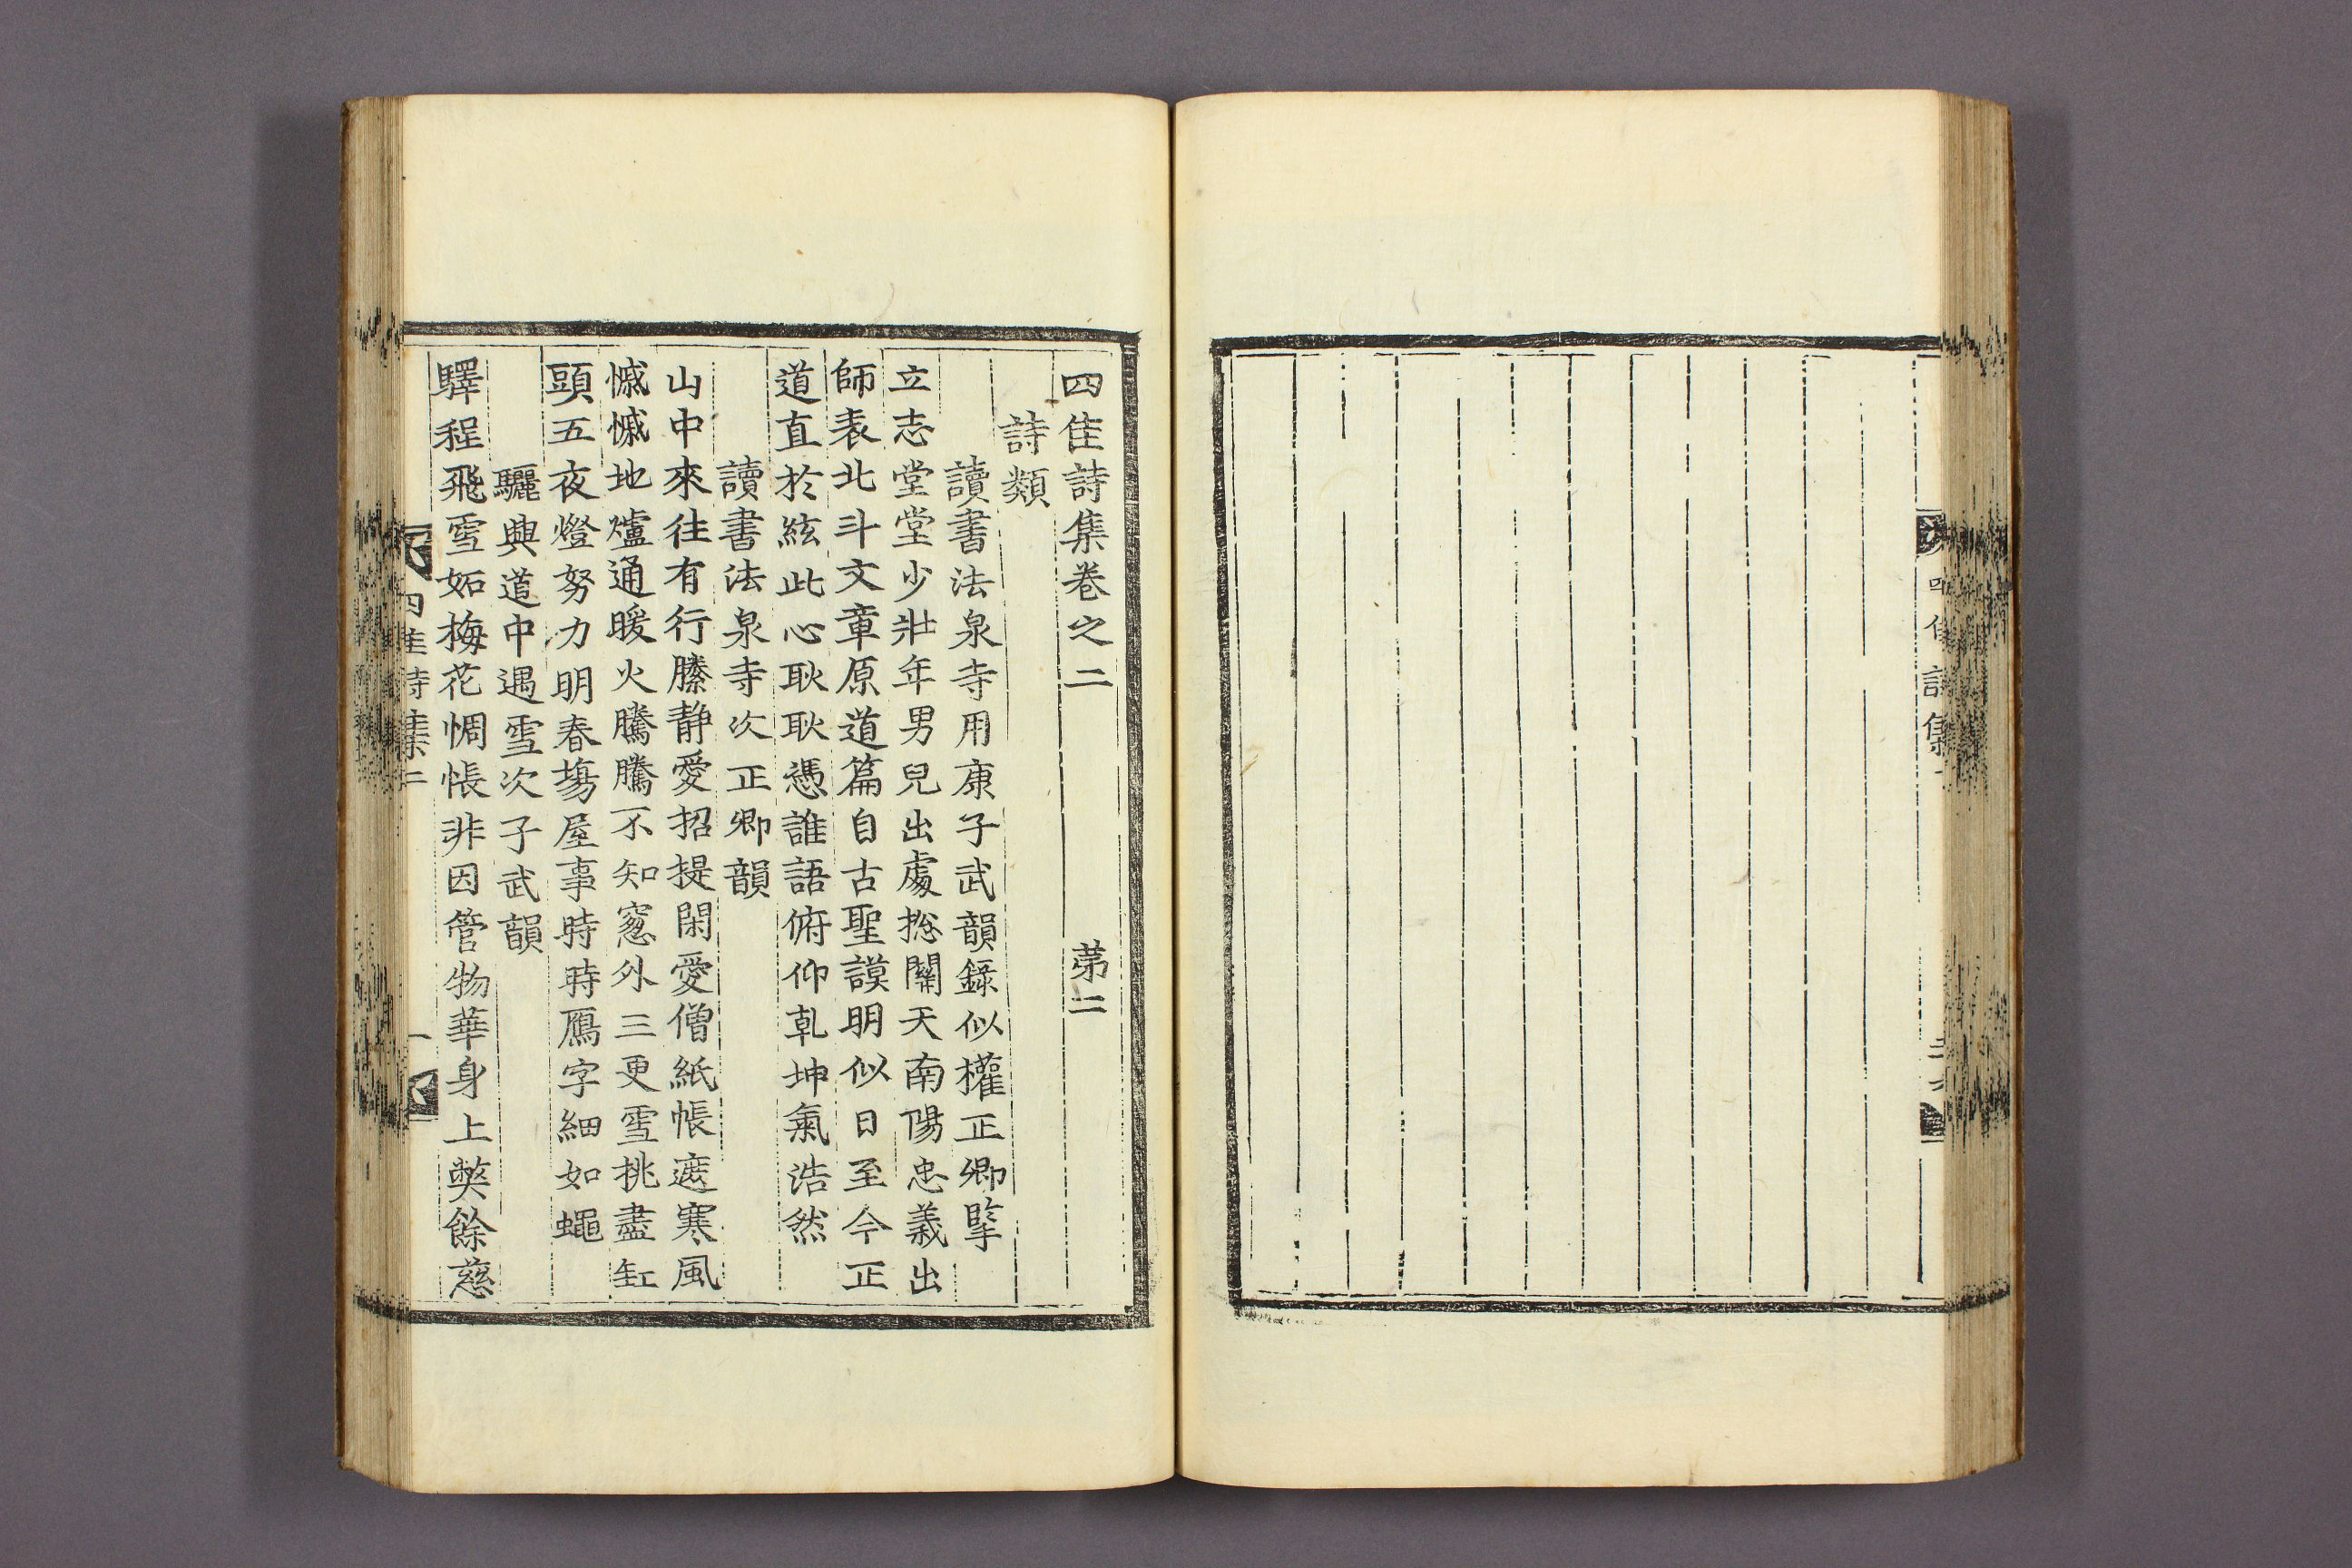 四佳詩集卷之二　第二
詩類
讀書法泉寺用康子武韻錄似權正卿擥
立志堂堂少壯年男兒出處摠關天南陽忠義出
師表北斗文章原道篇自古聖謨明似日至今正
道直於絃此心耿耿憑誰語俯仰乾坤氣浩然
讀書法泉寺次正卿韻
山中來往有行縢靜愛招提閑愛僧紙帳遮寒風
慽慽地爐通暖火騰騰不知窓外三更雪挑盡缸
頭五夜燈努力明春塲屋事時時鴈字細如蠅
驪興道中遇雪次子武韻
驛程飛雪妬梅花惆悵非因管物華身上弊餘慈
四佳詩集二　一
四佳詩集